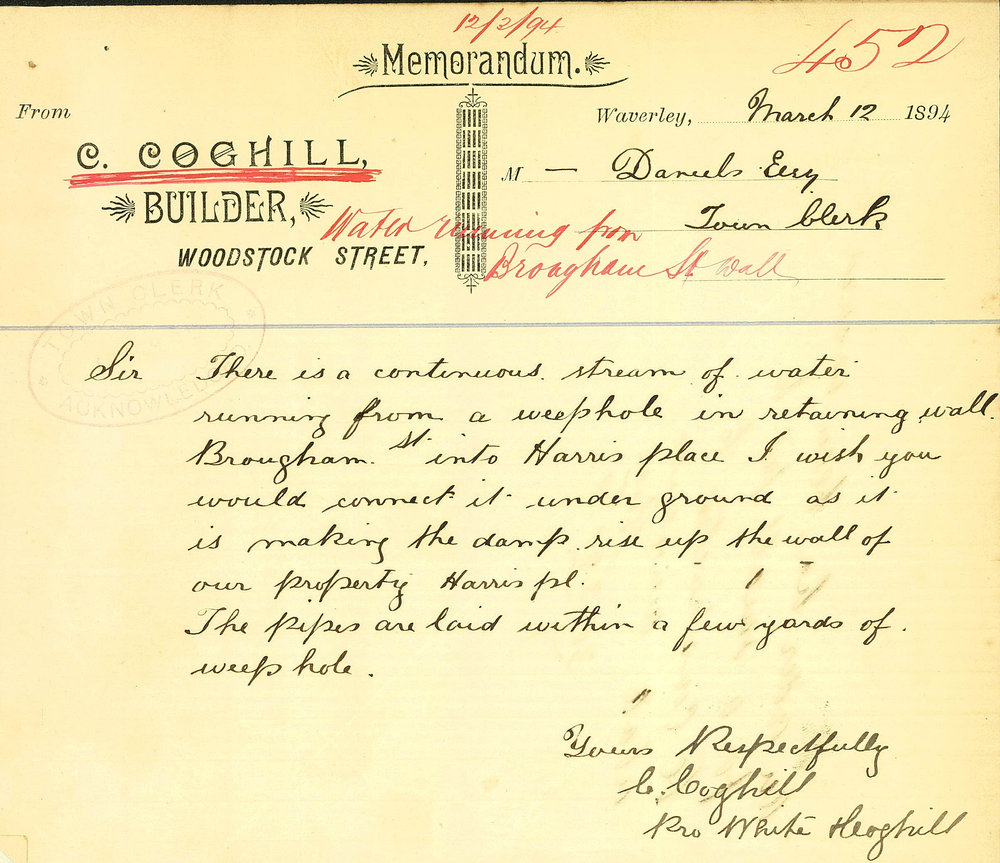 12/3/94
452
Memorandum.
From
Waverley, March 12 1894
C. COGHILL,
BUILDER,
WOODSTOCK STREET,
M — Daniels Esq
Town Clerk
Water running from
Brougham St. wall
TOWN CLERK
ACKNOWLEDGED
Sir There is a continuous. stream of water
running from a weephole in retaining wall.
Brougham. St. into Harris place I wish you
would connect it under ground as it
is making the damp rise up the wall of
our property Harris pl.
The pipes are laid within a few yards of.
weep hole.
Yours Respectfully
C. Coghill
Pro White &Coghill